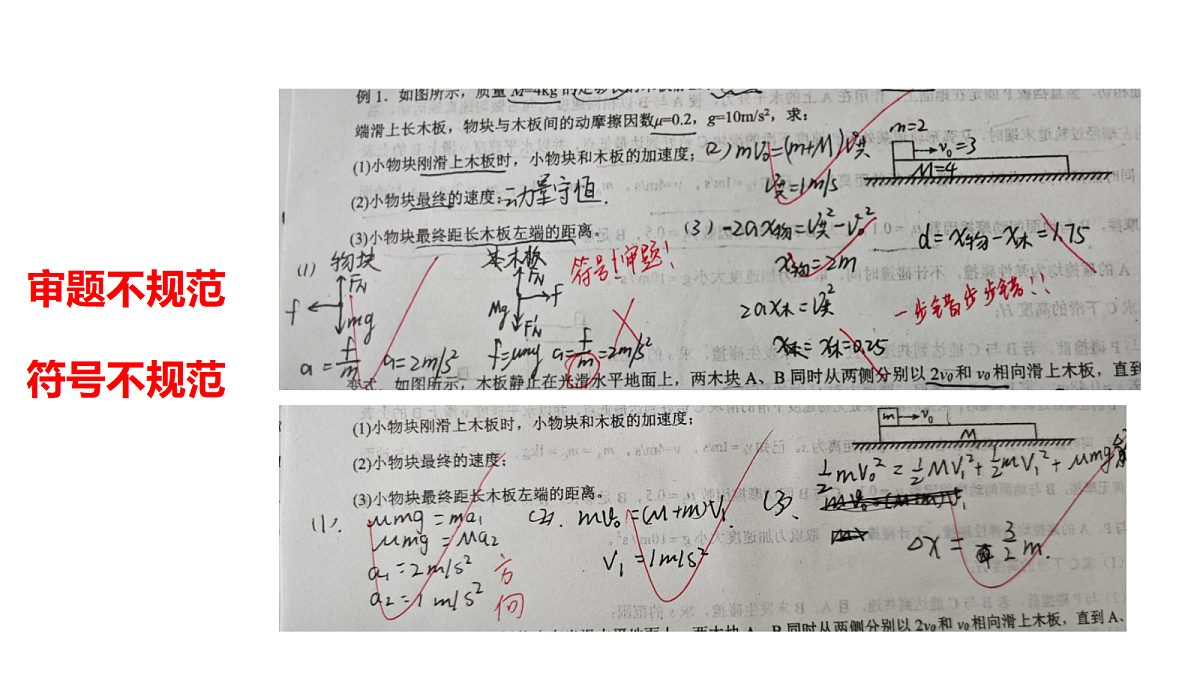 审题不规范
符号不规范
例1. 如图所示,质量M=4kg的足够长的木板
端滑上长木板,物块与木板间的动摩擦因数μ=0.2,g=10m/s²,求:
(1)小物块刚滑上木板时,小物块和木板的加速度;
(2)小物块最终的速度;动量守恒.
(3)小物块最终距长木板左端的距离。
(2) mv₀=(m+M)v共
v共=1m/s
m=2
v₀=3
M=4
(3) -2ax物=v共²-v₀²
x物=2m
2ax木=v共²
x木=0.25
d=x物-x木=1.75
一步错步步错!!
符号!审题!
(1) 物块
FN
f
mg
a=f/m a=2m/s²
长木板
FN
f
Mg
F'N
f=μmg a=f/m=2m/s²
变式. 如图所示,木板静止在光滑水平地面上,两木块A、B同时从两侧分别以2v₀和v₀相向滑上木板,直到
(1)小物块刚滑上木板时,小物块和木板的加速度;
(2)小物块最终的速度;
(3)小物块最终距长木板左端的距离。
m
v₀
M
(1). μmg=ma₁
μmg=Ma₂
a₁=2m/s²
a₂=1m/s²
方向
(2). mv₀=(M+m)v₁
v₁=1m/s²
(3).
½mv₀²=½Mv₁²+½mv₁²+μmg
Δx=3/2m.
两木块A、B同时从两侧分别以2v₀和v₀相向滑上木板,直到A、